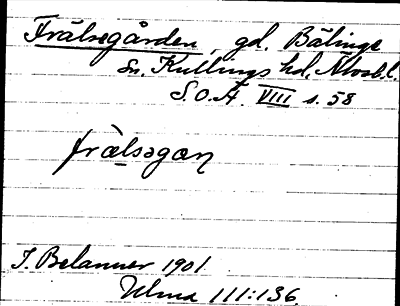 Frälsegården, gd. Bälinge
sn. Kullings hd, Älvsb. l.
S.O.Ä. VIII s. 58
frälsəgan
J. Belanner 1901.
Ulma 111:136.